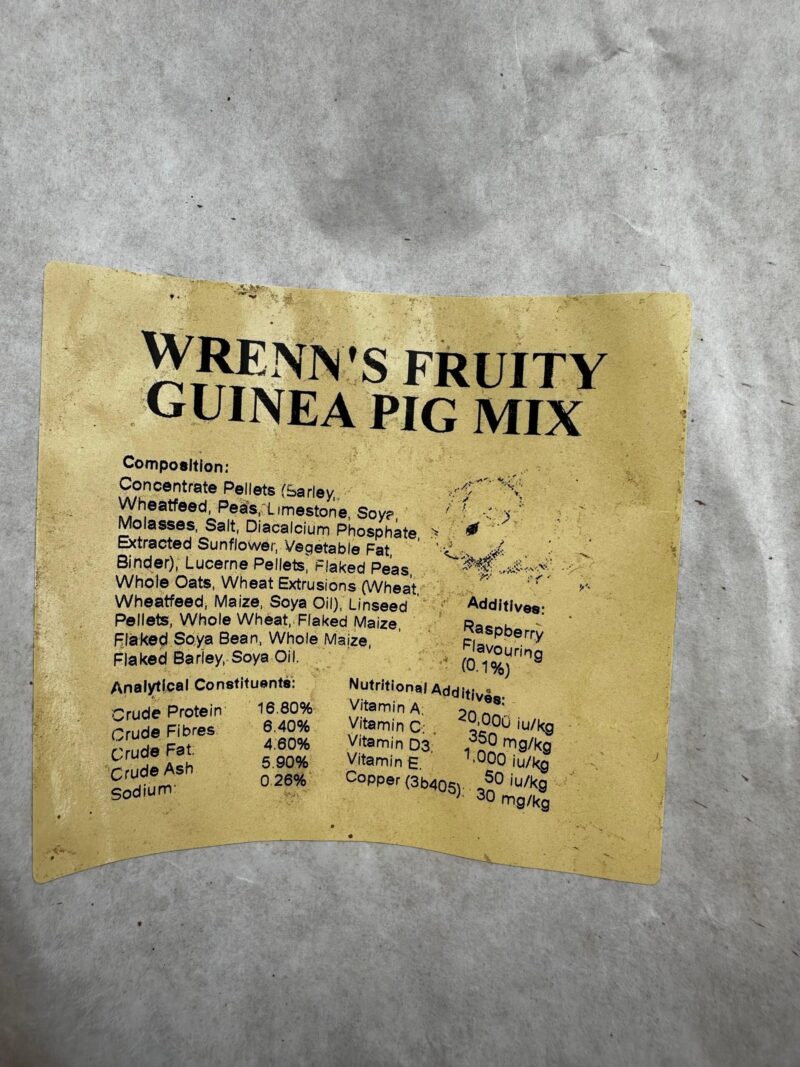 WRENN'S FRUITY
GUINEA PIG MIX
Composition:
Concentrate Pellets (Barley,
Wheatfeed, Peas, Limestone, Soya,
Molasses, Salt, Diacalcium Phosphate,
Extracted Sunflower, Vegetable Fat,
Binder), Lucerne Pellets, Flaked Peas,
Whole Oats, Wheat Extrusions (Wheat,
Wheatfeed, Maize, Soya Oil), Linseed
Pellets, Whole Wheat, Flaked Maize,
Flaked Soya Bean, Whole Maize,
Flaked Barley, Soya Oil.
Additives:
Raspberry
Flavouring
(0.1%)
Analytical Constituents:
Crude Protein 16.80%
Crude Fibres 6.40%
Crude Fat: 4.60%
Crude Ash 5.90%
Sodium: 0.26%
Nutritional Additives:
Vitamin A: 20,000 iu/kg
Vitamin C: 350 mg/kg
Vitamin D3: 1,000 iu/kg
Vitamin E: 50 iu/kg
Copper (3b405): 30 mg/kg